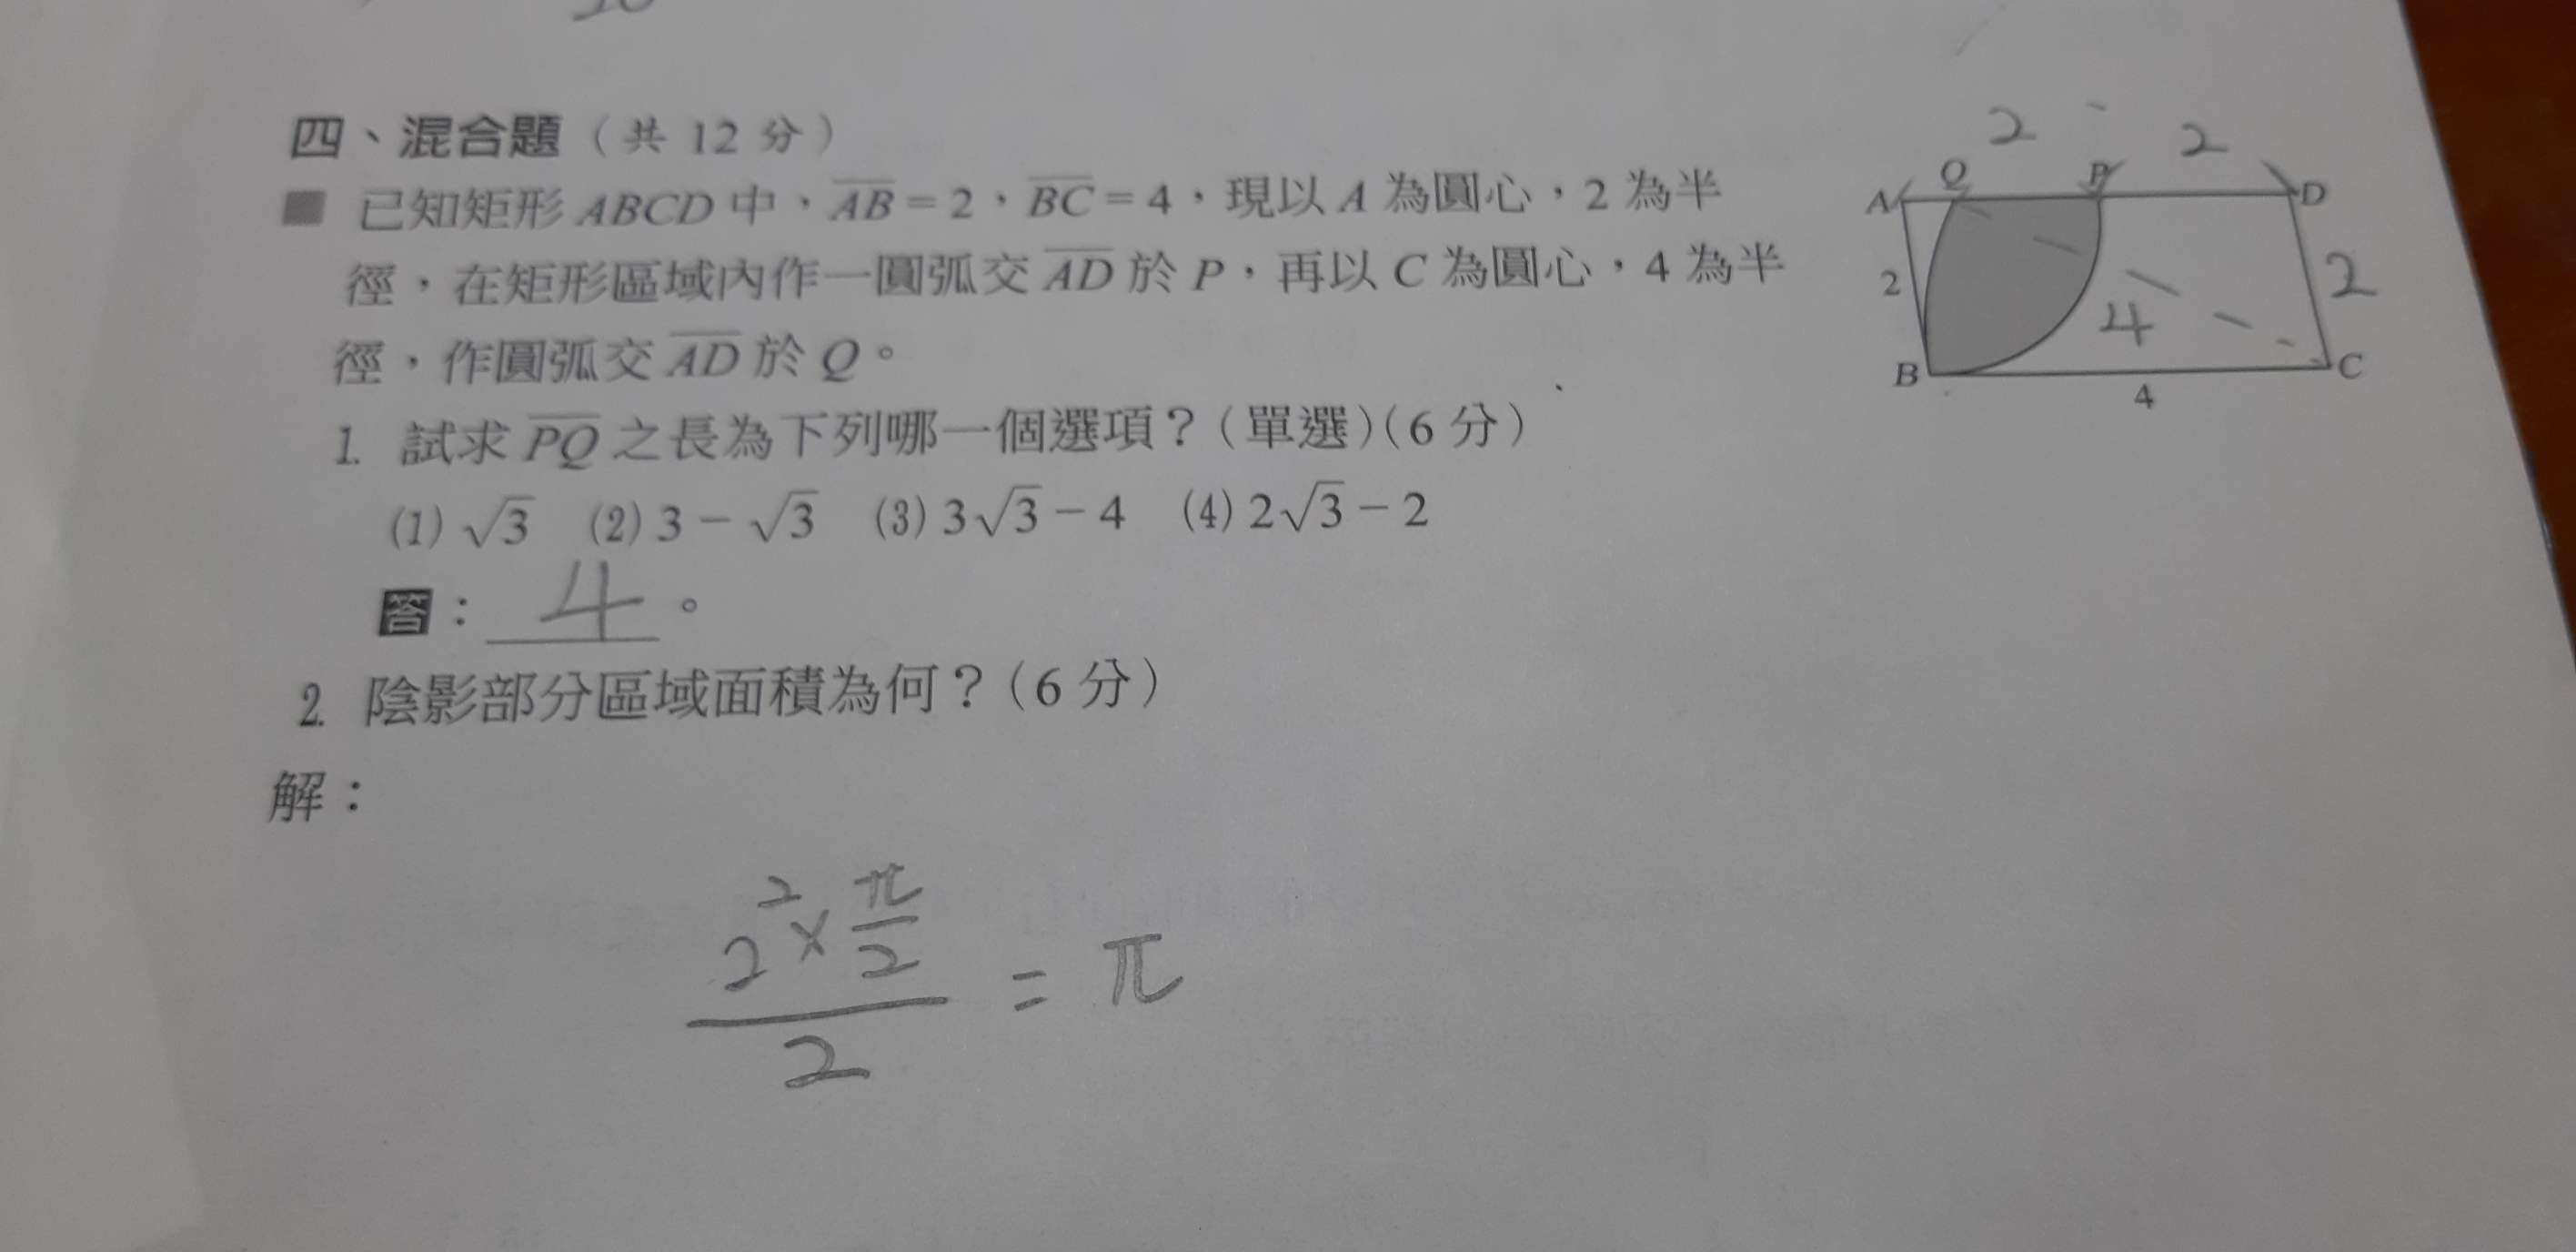 四、混合題（共 12 分）
■ 已知矩形 ABCD 中，AB = 2，BC = 4，現以 A 為圓心，2 為半
徑，在矩形區域內作一圓弧交 AD 於 P，再以 C 為圓心，4 為半
徑，作圓弧交 AD 於 Q。
2 2
A Q P D
2 4 2
B C
4
1. 試求 PQ 之長為下列哪一個選項？（單選）（6 分）
(1) √3 (2) 3 − √3 (3) 3√3 − 4 (4) 2√3 − 2
答：4。
2. 陰影部分區域面積為何？（6 分）
解：
(2² × π/2) / 2 = π